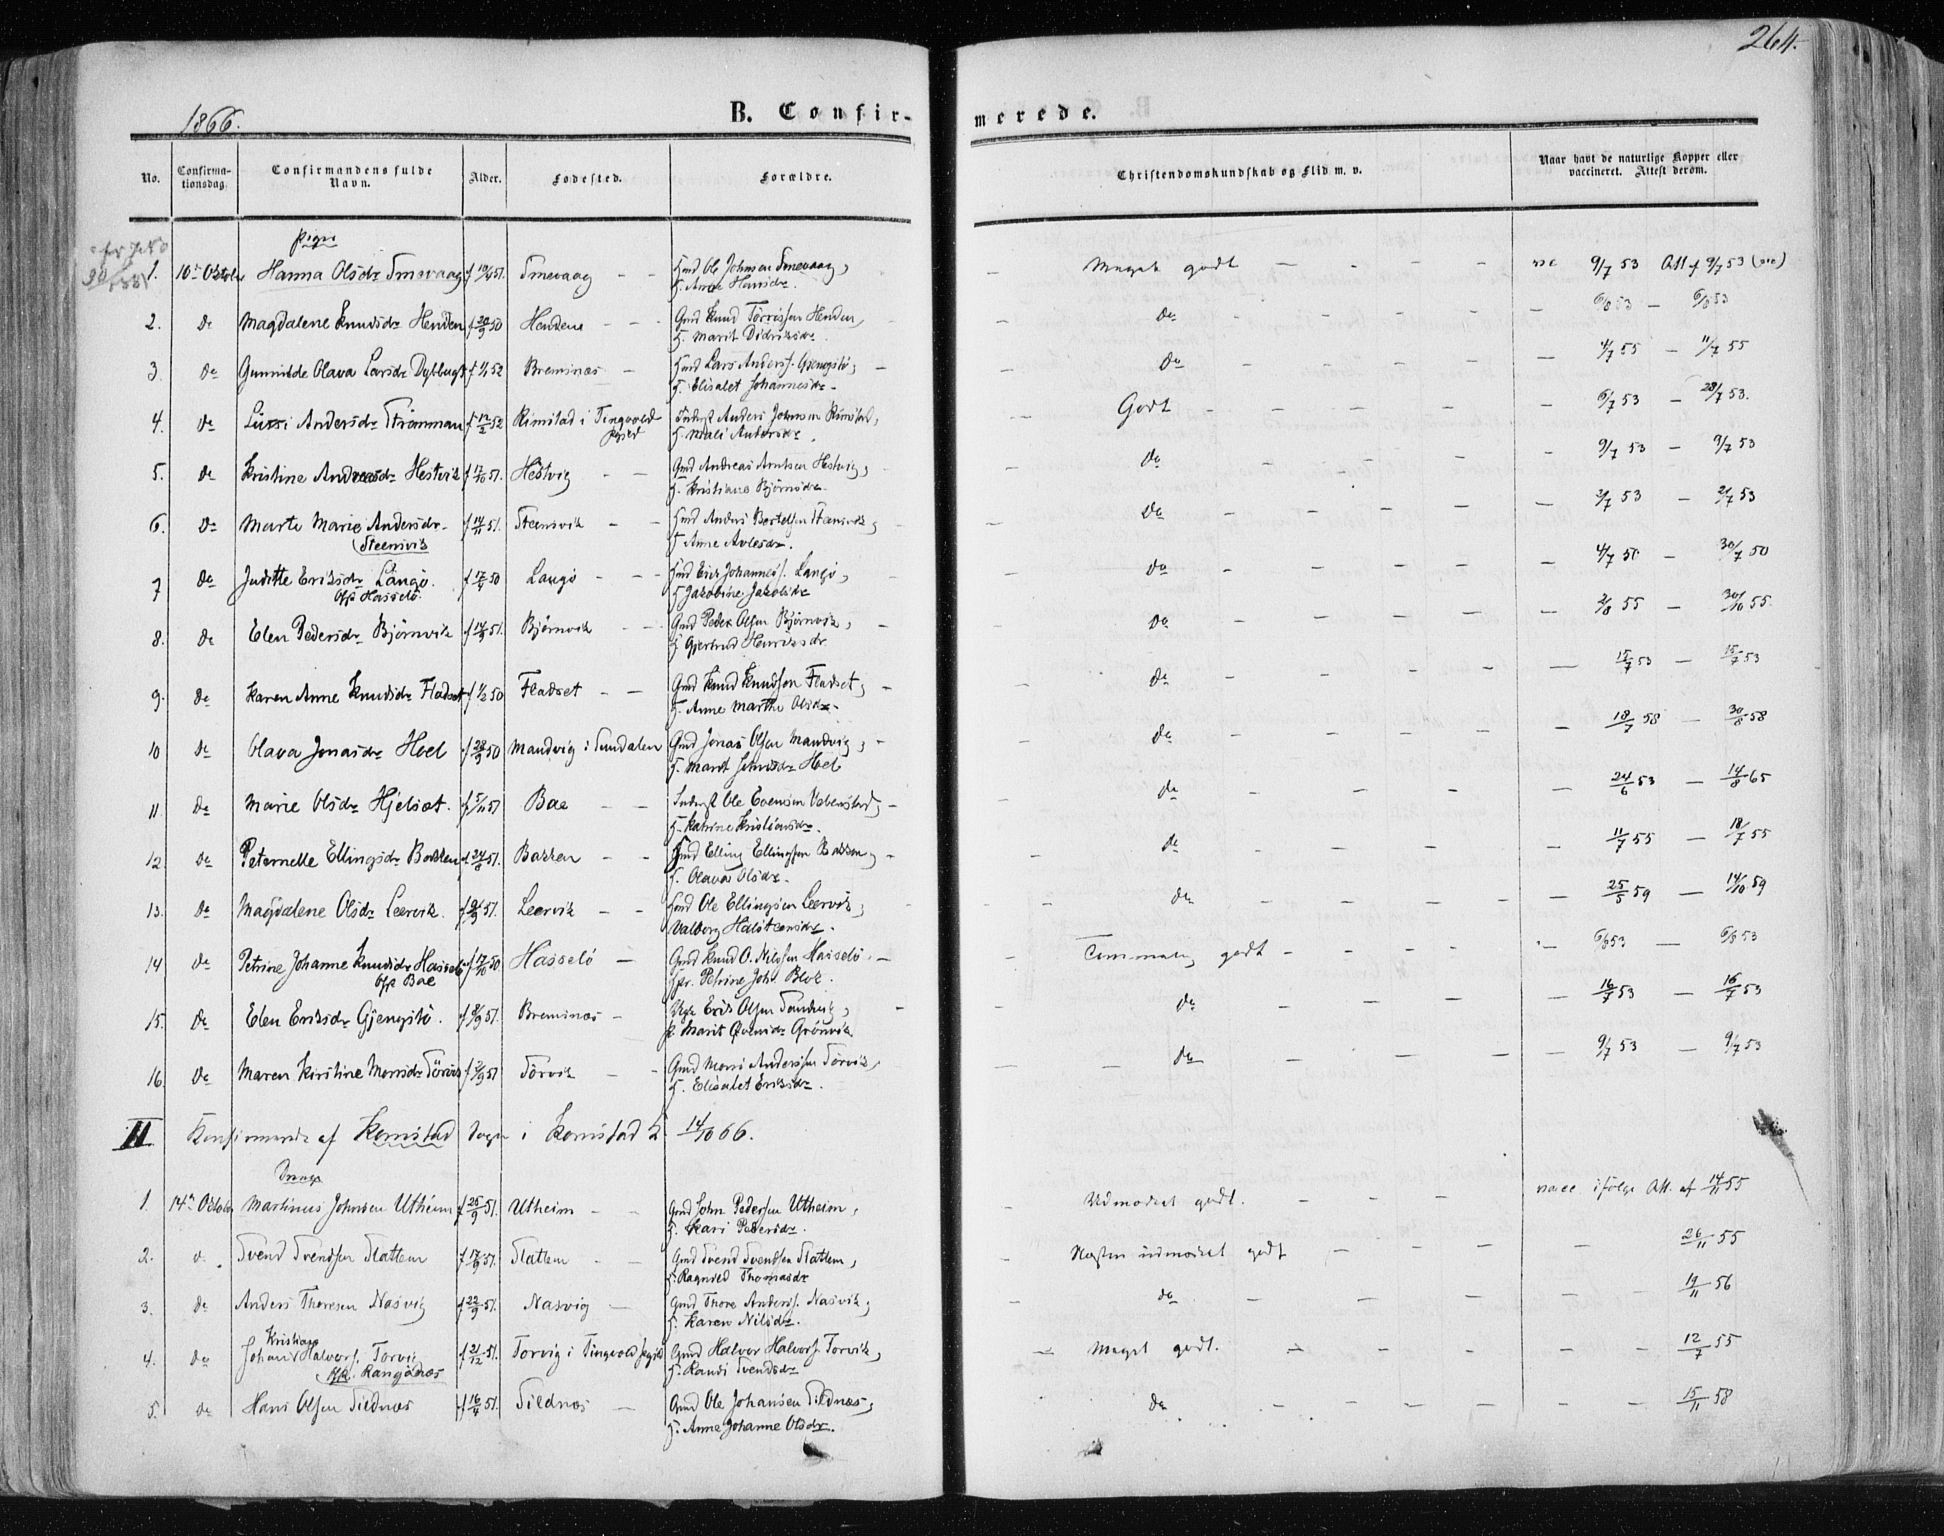 264.
1866.
B. Confirmerede.
No. Confirmationsdag. Confirmandens fulde Navn. Alder. Fødested. Forældre. Christendomskundskab og Flid m. v. Naar havt de naturlige Kopper eller vaccineret. Attest derom.
Piger
1. 10de Oktober Hanna Olsdr Smevaag f 19/4 51. Smevaag Hmd Ole Johnsen Smevaag, Meget godt 9/7 53 Att. f 9/7 53
H. Anne Hansdr.
2. do Magdalene Knudsdr Henden f 30/9 50 Hendene Gmd Knud Henden, do 6/8 53 — 6/8 53
H. Marit Didriksdr.
3. do Gunnilde Olava Larsdr Dybbugt f 1/1 52 Bremsnæs Hmd Lars Anders. Gjengstø; do 4/7 55 — 11/7 55
H. Elisabet Johannesdr
4. do Lussi Andersdr Strømman f 12/2 52 Rimstad i Tingvold Inderst Anders Johnsen Rimstad, Godt 6/7 53 — 28/7 53.
Pgjeld H. Mali Andersdr.
5. do Kristine Andreasdr Hestvik f 17/10 51. Hestvig Gmd Andreas Arntsen Hestvig; do 9/7 53 — 9/7 53
H. Kristiane Bjørnsdr
6. do Marte Marie Andersdr f 14/11 51. Steensvik Hmd Anders Bertelsen Stensvik; do 2/7 53 — 2/7 53
Steensvik H. Anne Avlesdr.
7 do Juditte Eriksdr Langø. f 17/4 50 Langø Hmd Erik Johannes. Langø, do 4/7 50 — 30/7 50
Opf Hasselø. H Jakobine Jakobsdr
8. do Elen Pedersdr Bjørnvik f 14/8 51. Bjørnvik Gmd Peder Olsen Bjørnvik, do 2/8 55 — 30/10 55.
H Gjertrud Henriksdr
9. do Karen Anne Knudsdr Fladset f 1/2 50 Fladset Gmd Knud Knudsen Fladset, do 15/7 53 — 15/7 53
H. Anne Marthe Olsdr
10 do Olava Jonasdr Hoel f 28/9 50 Mandvig i Sundalen Gmd Jonas Olsen Mandvig; do 18/7 58 — 30/8 58
H. Marit Hoel
11 do Marie Olsdr Hjelset. f 5/11 51 Bae Inderst Ole Evensen do 24/6 53 — 14/8 65
H. Katrine Kristiansdr.
12. do Peternelle Ellingsdr Bakken f 24/8 51. Bakken Gmd Elling Ellingsen Bakken, do 11/7 55 — 18/7 55
H. Olava Olsdr
13. do Magdalene Olsdr Leervik. f 51. Leervik Hmd Ole Ellingsen Leervik; do 25/5 59 — 14/10 59
Valborg Halstensdr.
14 do Petrine Johanne Knudsdr Hasselø f 17/10 50 Hasselø Gmd Knud O. Nilssen Hasselø Temmelig godt 6/8 53 — 6/8 53
Opf Bae Petrine Joh. Blok.
15. do Elen Eriksdr Gjengstø. f 51. Bremsnæs Ugk Erik Olsen Sandvik, do 16/7 53 — 16/7 53
p. Marit Grønvik
16. do Maren Kirstine Monsdr Sørvik f 51 Sørvik Gmd Mons Anderssen Sørvik, do 9/7 53 — 9/7 53
H. Elisabet Eriksdr.
II Konfirmerede af Kornstad Sogn i Kornstad K. 14/10 66.
Drenge
1. 14de Oktober Martinus Johnsen Utheim f 25/9 51. Utheim Gmd John Pedersen Utheim, Udmærket godt. vacc ifølge Att. af 14/11 55
H. Kari Pedersdr.
2. d. Svend Svendsen Slattem f 17/9 51. Slattem Gmd Svend Svendsen Slattem, Næsten udmærket godt 26/11 55
H. Ragnild Thomasdr
3. do Anders Thoresen Nasvig f 22/9 51. Nasvig Gmd Thore Anders. Nasvik; do 19/11 56
H. Karen Nilsdr.
Kristian
4. do Johan Halvors. Torvig f 21/12 51. Torvig i Tingvold Pgjeld Gmd Halvor Halvors. Torvik, Meget godt. 12/7 55
Opf. Rangønes H. Randi Svendsdr
5. do Hans Olsen Sildnæs f 16/4 51. Sildnæs Gmd Ole Johansen Sildnæs, do 15/11 58
H. Anne Johanne Olsdr.